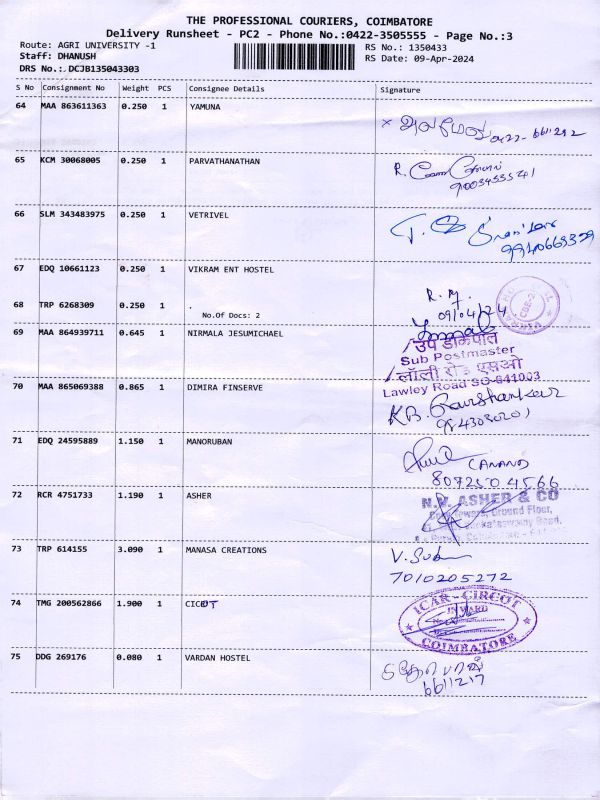 THE PROFESSIONAL COURIERS, COIMBATORE
Delivery Runsheet - PC2 - Phone No.:0422-3505555 - Page No.:3
Route: AGRI UNIVERSITY -1
RS No.: 1350433
Staff: DHANUSH
RS Date: 09-Apr-2024
DRS No.: DCJB135043303
S No Consignment No Weight PCS Consignee Details Signature
64 MAA 863611363 0.250 1 YAMUNA
65 KCM 30068005 0.250 1 PARVATHANATHAN
R.
66 SLM 343483975 0.250 1 VETRIVEL
67 EDQ 10661123 0.250 1 VIKRAM ENT HOSTEL
R.M.
09/04/24
68 TRP 6268309 0.250 1 .
No.Of Docs: 2
69 MAA 864939711 0.645 1 NIRMALA JESUMICHAEL
उप डाकपाल
Sub Postmaster
लॉली रोड एसओ
Lawley Road SO-641003
70 MAA 865069388 0.865 1 DIMIRA FINSERVE
71 EDQ 24595889 1.150 1 MANORUBAN
72 RCR 4751733 1.190 1 ASHER
N.V. ASHER & CO
Ground Floor,
73 TRP 614155 3.090 1 MANASA CREATIONS
7010205272
74 TMG 200562866 1.900 1 CICOT
ICAR-CIRCOT
INWARD
COIMBATORE
75 DDG 269176 0.080 1 VARDAN HOSTEL
6611217